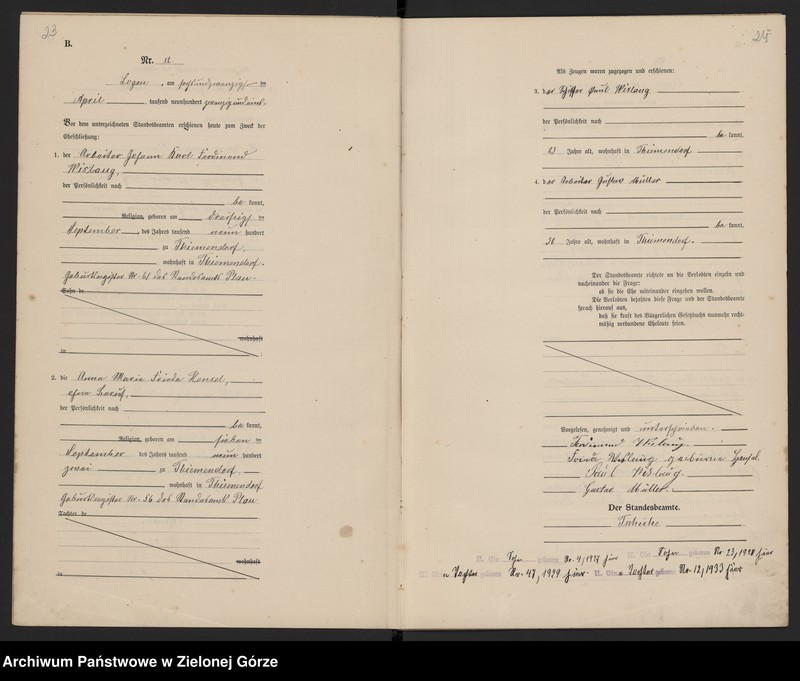 23
B.
Nr. 11
Logau, am sechsundzwanzigsten
April tausend neunhundert zwanzig und eins.
Vor dem unterzeichneten Standesbeamten erschienen heute zum Zweck der
Eheschließung:
1. der Arbeiter Johann Karl Ferdinand
der Persönlichkeit nach
be kannt,
Religion, geboren am dreißigsten
September des Jahres tausend neun hundert
zu Thiemendorf,
wohnhaft in Thiemendorf.
Geburtsregister Nr. 61 des Standesamts Plau.
Sohn de
wohnhaft
in
2. die Anna Marie Frieda Hensel,
ohne Beruf,
der Persönlichkeit nach
be kannt,
Religion, geboren am sieben ten
September des Jahres tausend neun hundert
zwei zu Thiemendorf,
wohnhaft in Thiemendorf
Geburtsregister Nr. 56 des Standesamts Plau
Tochter de
wohnhaft
in
Als Zeugen waren zugezogen und erschienen:
3. der Schiffer Paul
der Persönlichkeit nach
be kannt,
23 Jahre alt, wohnhaft in Thiemendorf
4. der Arbeiter Gustav Müller
der Persönlichkeit nach
be kannt,
Jahre alt, wohnhaft in Thiemendorf.
Der Standesbeamte richtete an die Verlobten einzeln und
nacheinander die Frage:
ob sie die Ehe miteinander eingehen wollen.
Die Verlobten bejahten diese Frage und der Standesbeamte
sprach hierauf aus,
daß sie kraft des Bürgerlichen Gesetzbuchs nunmehr recht-
mäßig verbundene Eheleute seien.
Vorgelesen, genehmigt und unterschrieben.
Ferdinand
Frieda geborene Hensel
Paul
Gustav Müller.
Der Standesbeamte.
Sohn geboren Nr. 4/1927 hier Sohn geboren Nr. 23/1928 hier
Tochter geboren Nr. 47, 1929 hier. Eine Tochter geboren Nr. 12/1933 hier
Archiwum Państwowe w Zielonej Górze